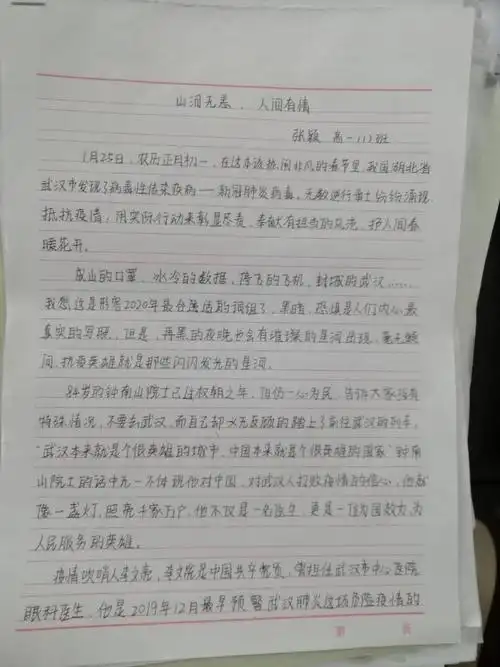 山河无恙，人间有情
张颖 高一112班
1月25日，农历正月初一，在这本该热闹非凡的春节里，我国湖北省
武汉市发现了病毒性传染疾病——新冠肺炎病毒。无数逆行勇士纷纷涌现
抵抗疫情，用实际行动来彰显尽责、奉献有担当的
护人间春
暖花开。
成山的口罩，冰冷的数据，停飞的飞机，封城的武汉……
我想这是形容2020年最合适的词组了，黑暗，恐惧是人们内心最
真实的写照，但是，再黑的夜晚也会有璀璨的星河出现，毫无疑
问，抗疫英雄就是那些闪闪发光的星河。
84岁的钟南山院士已过杖朝之年，但仍一心为民，告诉大家没有
特殊情况，不要去武汉，而自己却义无反顾的踏上了前往武汉的列车。
“武汉本来就是个很英雄的城市，中国本来就是个很英雄的国家”钟南
山院士的话中无一不体现他对中国，对武汉人打败疫情的信心，他都
像一盏灯，照亮千家万户，他不仅是一名医生，更是一位为国效力，为
人民服务的英雄。
疫情吹哨人李文亮，李文亮是中国共产党员，曾担任武汉市中心医院
眼科医生，他是2019年12月最早预警武汉肺炎这场危险疫情的
第 页